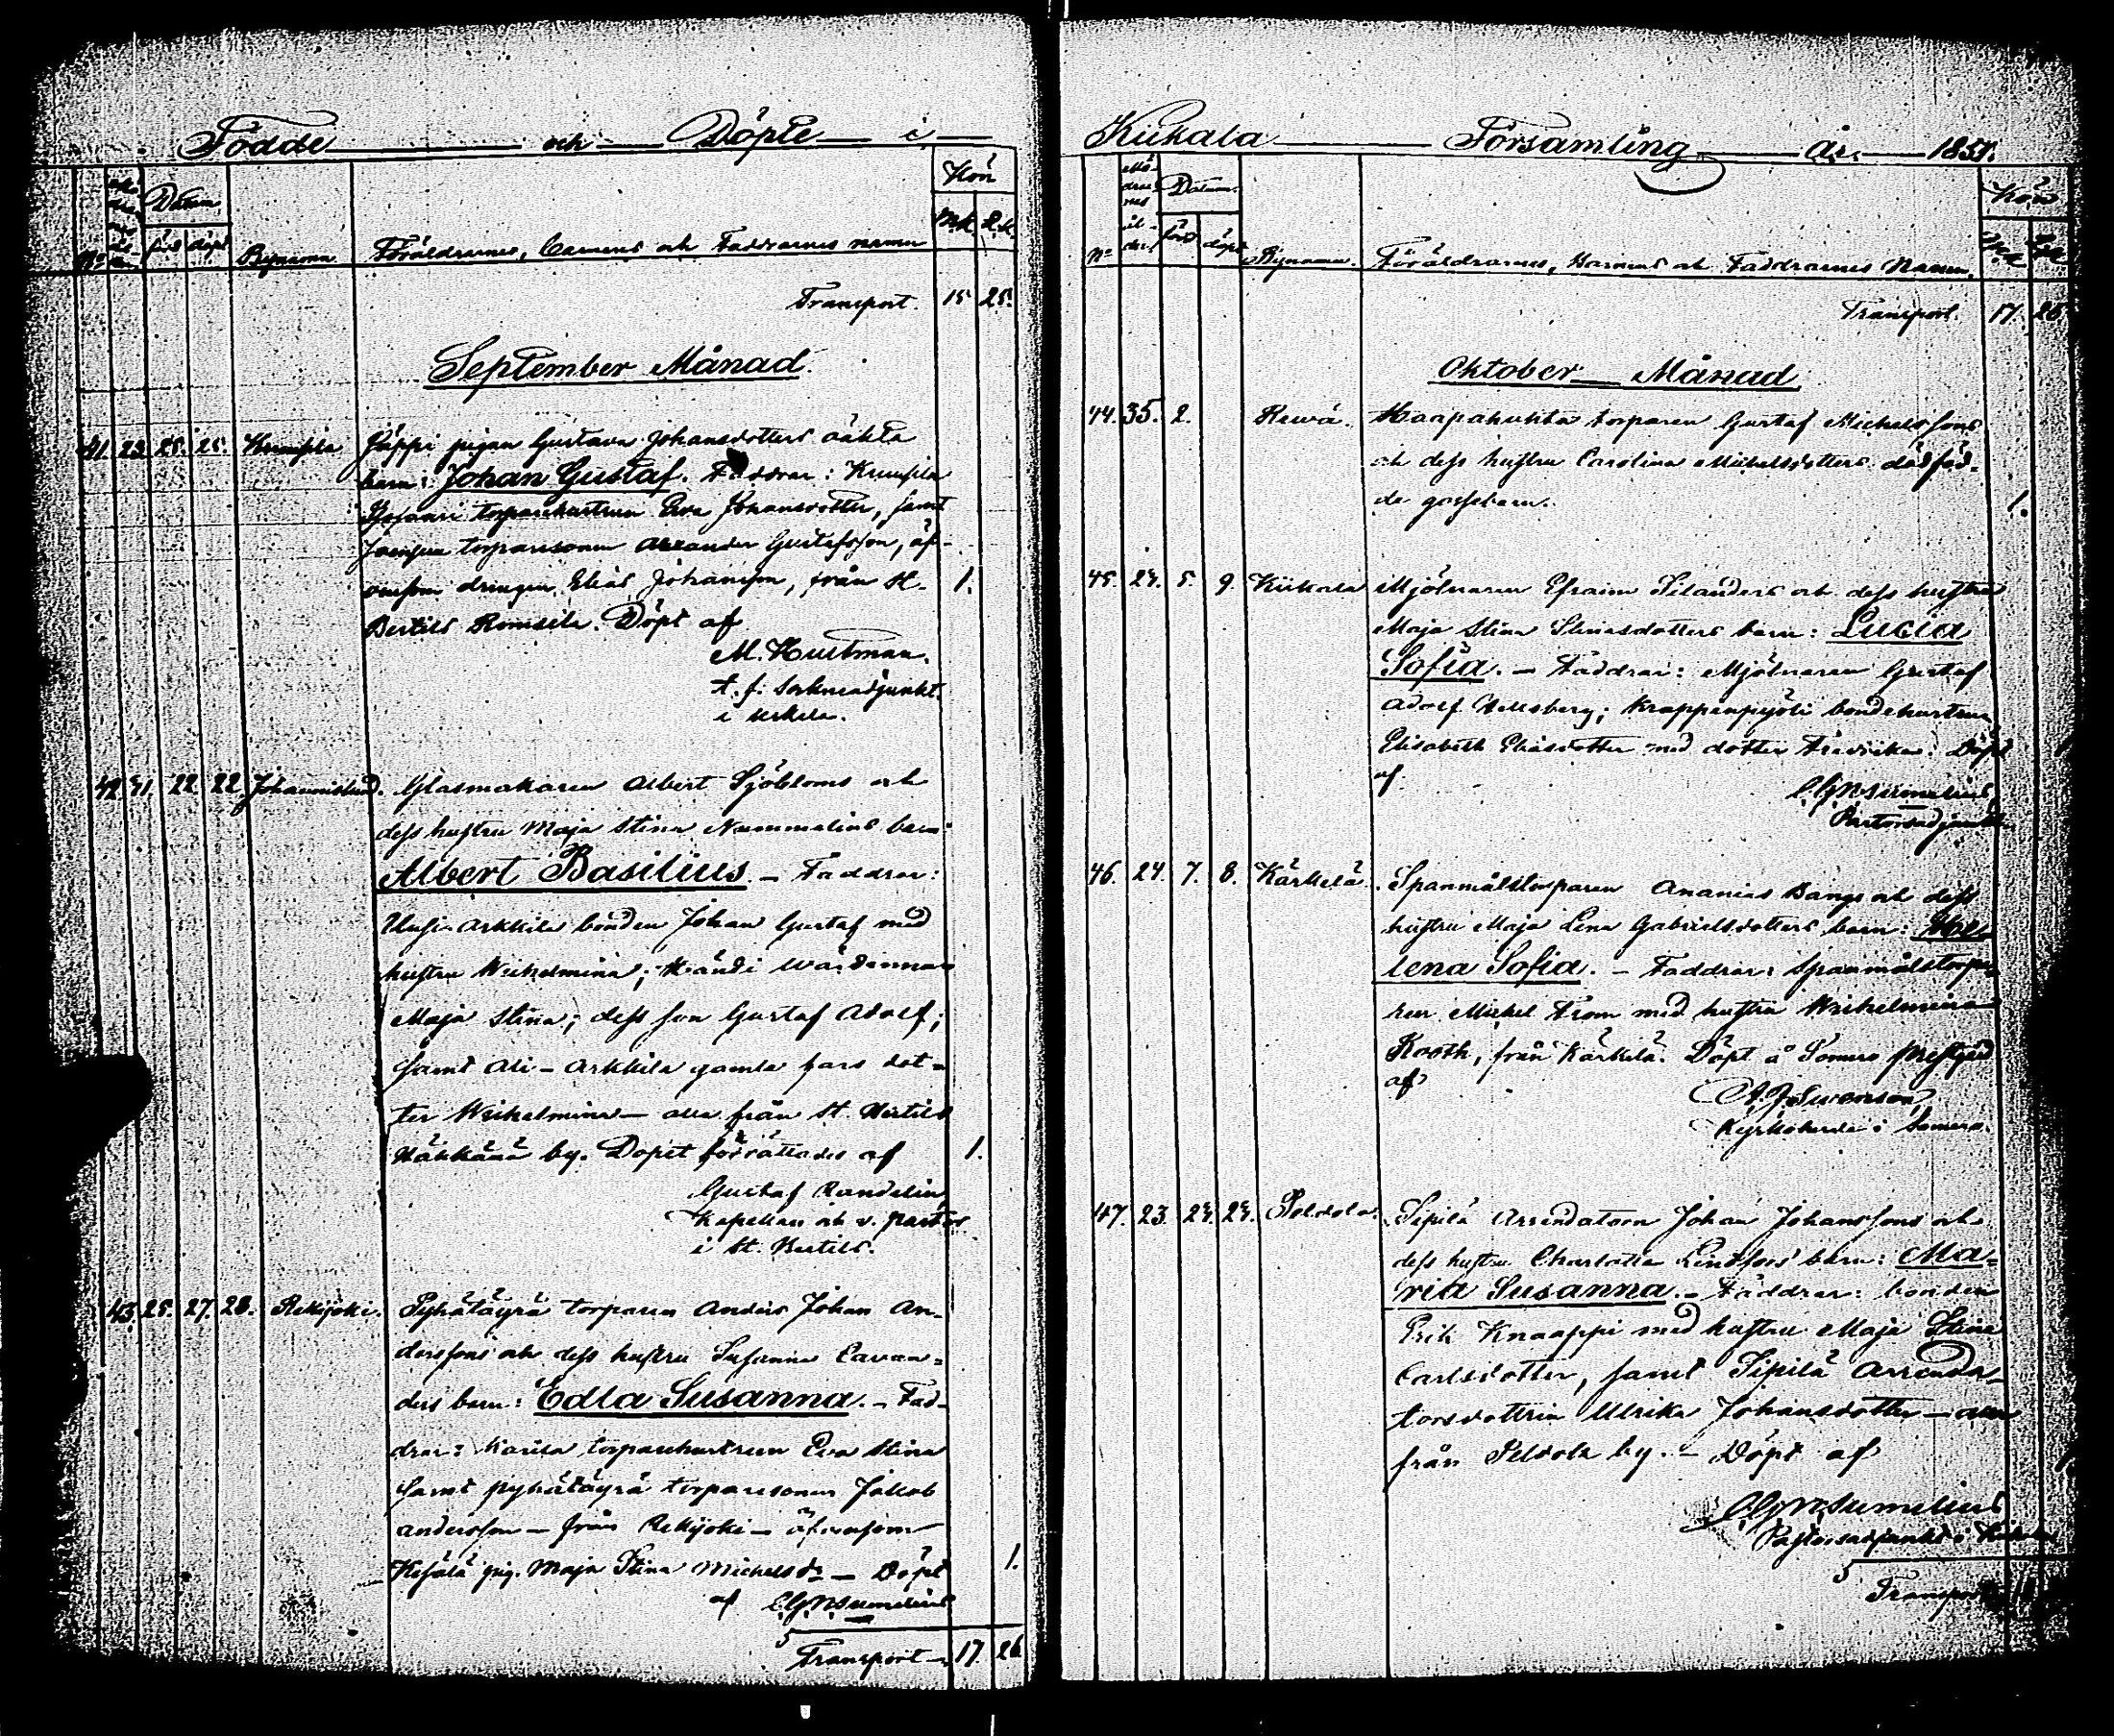 Födde och Döpte i
Kön
Datum
M.k. Q.k.
No född döpt Bynamn Föräldrarnes, Barnens och Faddrarnes namn
Transport. 15 25.
September Månad.
41. 23. 25. 25. Krumpla Jäppi pigan Gustava Johansdotters oäkta
barn: Johan Gustaf. Faddrar: Krumpla
torparehustrun Eva Johansdotter, samt
torparesonen Alexander Gustafsson, äf-
vensom drengen Elias Johansson, från St. 1.
Bertils Romsila. Döpt af
M. Hustman.
t. f. Sockneadjunkt
i Uskela.
42. 41. 22. 22. Johannislund. Glasmakaren Albert Sjöbloms och
dess hustru Maja Stina Nummelins barn
Albert Basilius. – Faddrar:
Uusi-Arkkila bonden Johan Gustaf med
hustru Wilhelmina; Händi Wärdinnan
Maja Stina; dess son Gustaf Adolf;
samt Ali-Arkkila gamla fars dot-
ter Wilhelmina – alla från St. Bertils
Häkkänä by. Dopet förrättades af 1.
Gustaf Randelin
Kapellan och v. pastor
i St. Bertils.
43. 25. 27. 28. Rekijoki. Pyhätäyrä torparen Anders Johan An-
derssons och dess hustru Susanna Cavan-
ders barn: Edla Susanna. – Fad-
drar: torparehustrun Eva Stina
samt Pyhätäyrä torparesonen Jakob
Andersson – från Rekijoki – äfvensom
pig. Maja Stina Michelsdr – Döpt 1.
af C.G. Wsumelius
Transport 17 26
Kiikala Församling år 1851.
Mö-
drar-
nes
ål-
der. Datum. Kön
No född döpt Bynamn. Föräldrarnes, Barnens och Faddrarnes Namn.
Transport. 17. 26
Oktober Månad
44. 35. 2. Rewä. Haapahuhta torparen Gustaf Michelssons
och dess hustru Carolina Michelsdotters dödföd-
de gossebarn. 1.
45. 24. 5. 9. Kiikala Mjölnaren Efraim Silanders och dess hustru
Maja Stina Stinasdotters barn: Lucia
Sofia. – Faddrar: Mjölnaren Gustaf
Adolf Hellsberg; bondehustrun
Elisabeth Eliasdotter med dotter Fredrika. Döpt
af
C.G. Wsumelius
Pastorsadjunkt
46. 24. 7. 8. Kärkelä. Spanmålstorparen Ananias Bangs och dess
hustru Maja Lena Gabrielsdotters barn:
lena Sofia. – Faddrar: Spanmålstorpa-
ren Michel From med hustru Wilhelmina
Kooth, från Kärkelä. Döpt å Somero Prestgård
af
Swenson
Kyrkoherde i Somero.
47. 23. 24. 24. Peldola. Sipilä Arrendatorn Johan Johanssons och
dess hustru Charlotta Lindfors barn: Ma-
ria Susanna. – Faddrar: bonden
Erik Knaappi med hustru Maja Stina
Carlsdotter, samt Sipilä Arrenda-
torsdottern Ulrika Johansdotter – alla
från Peldola by. – Döpt af
C.G. Wsumelius
Pastorsadjunkt i
Transport